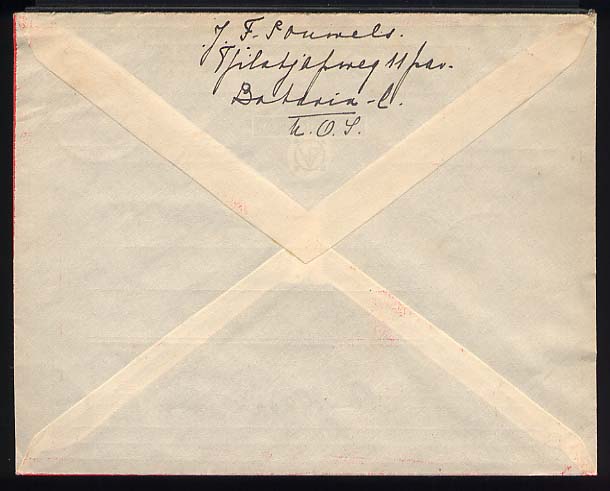 J. F. Pouwels.
Tjilatjapweg 11 pav.
Batavia-C.
N.O.I.